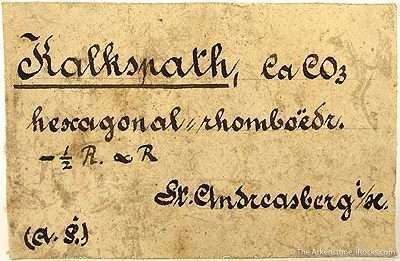 Kalkspath, CaCO3
hexagonal, rhomboëdr.
-½ R. ∞ R
St. Andreasberg i/H.
(a. S.)
© The Arkenstone, iRocks.com